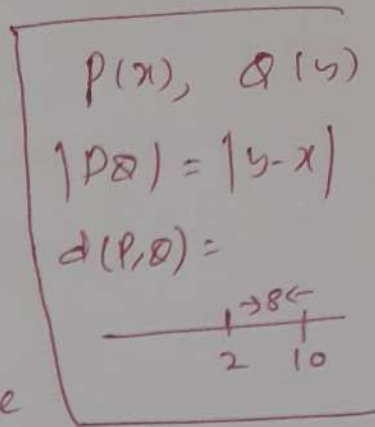 P(x), Q(y)
|PQ| = |y-x|
d(P,Q) =
→8←
2 10
e